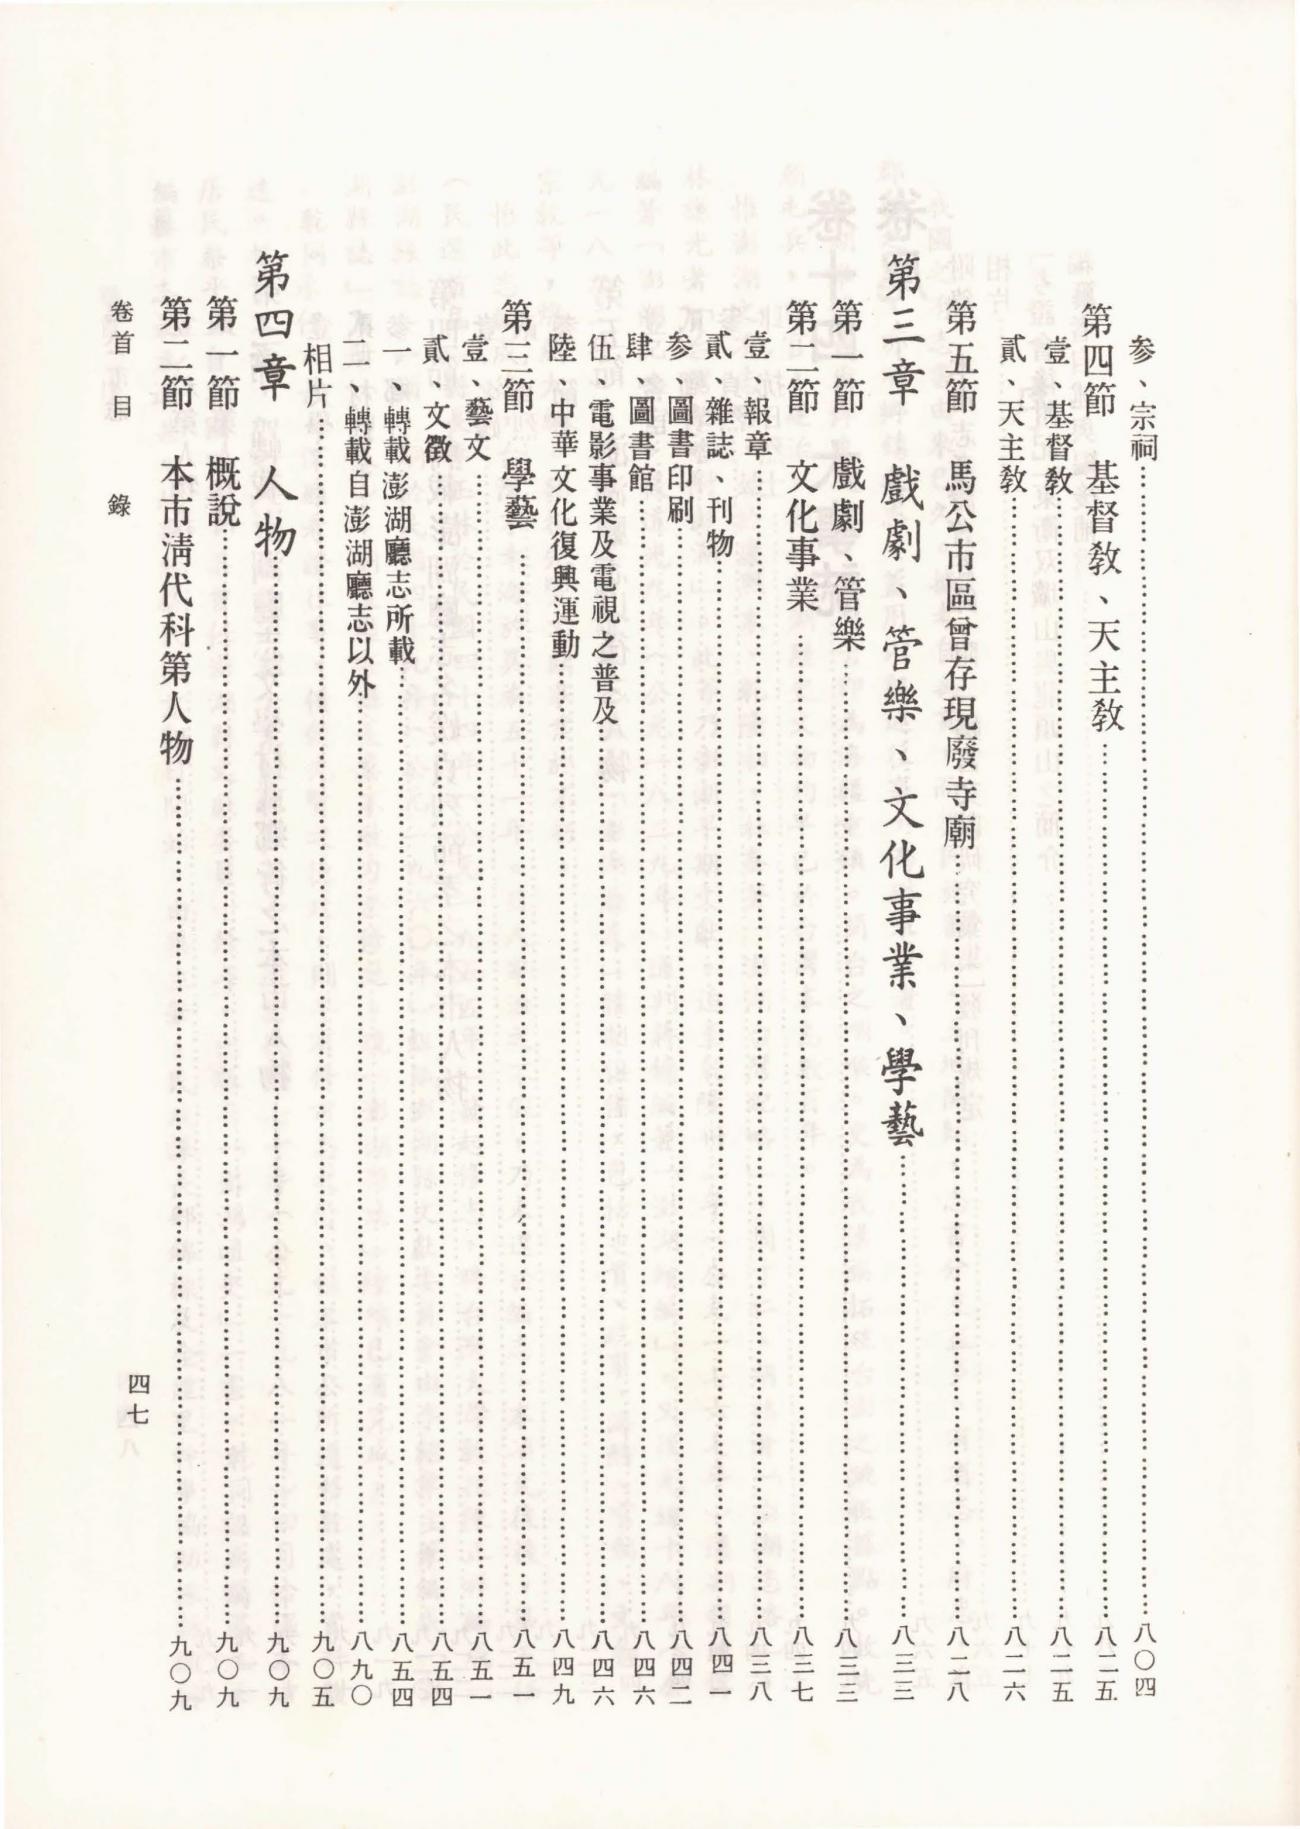 參、宗祠……八〇四
第四節　基督教、天主教……八二五
壹、基督教……八二五
貳、天主教……八二六
第五節　馬公市區曾存現廢寺廟……八二八
第三章　戲劇、管樂、文化事業、學藝……八三三
第一節　戲劇、管樂……八三三
第二節　文化事業……八三七
壹、報章……八三八
貳、雜誌、刊物……八四一
參、圖書印刷……八四二
肆、圖書館……八四六
伍、電影事業及電視之普及……八四六
陸、中華文化復興運動……八四九
第三節　學藝……八五一
壹、藝文……八五一
貳、文徵……八五四
一、轉載澎湖廳志所載……八五四
二、轉載自澎湖廳志以外……八九〇
相片……九〇五
第四章　人物……九〇九
第一節　概說……九〇九
第二節　本市清代科第人物……九〇九
卷首　目　錄
四七